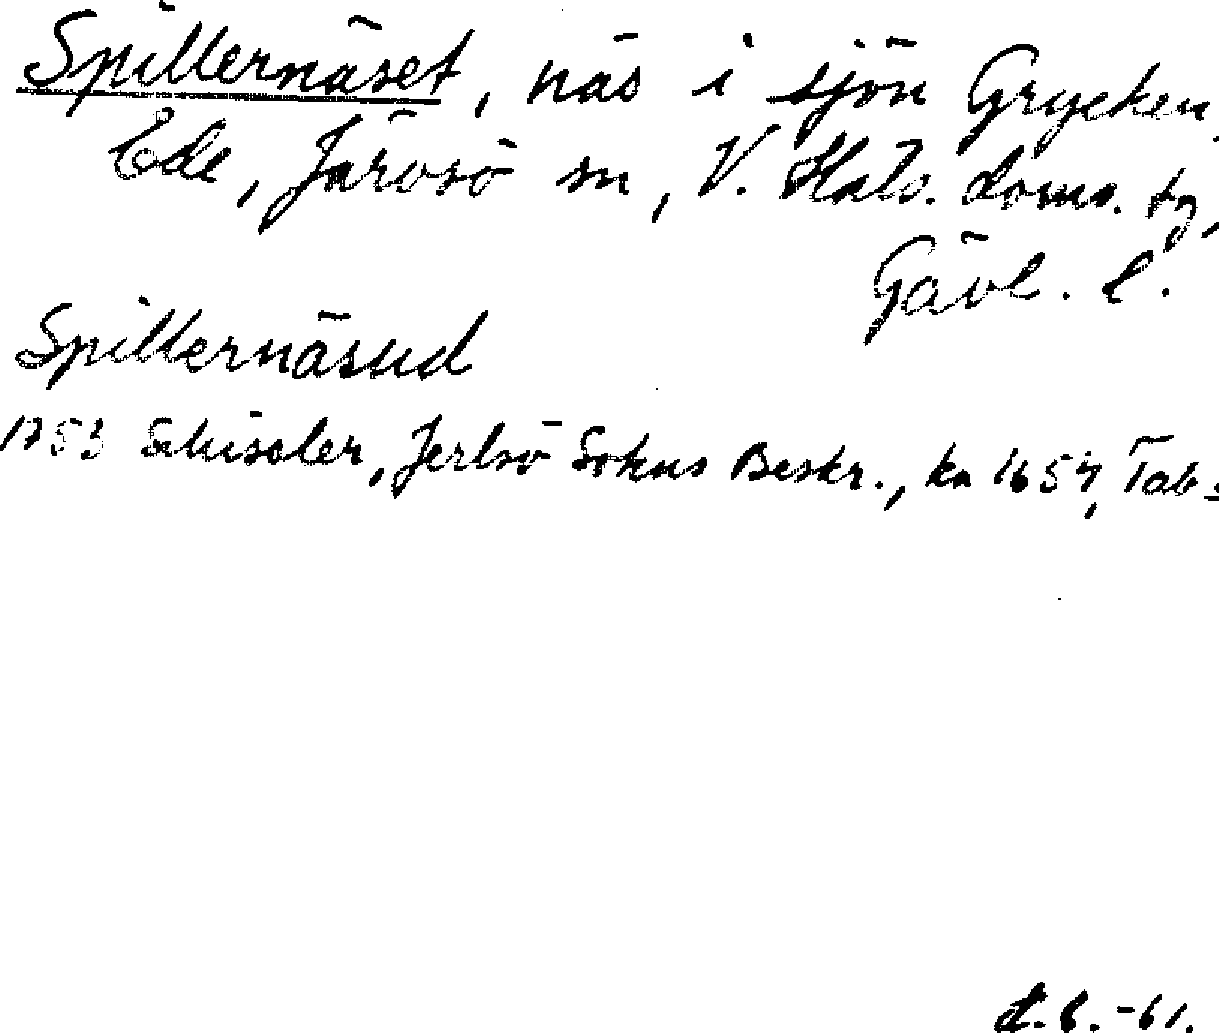 Spillernäset, näs i sjön Grycken,
Ede, Järvsö sn, V. Häls. doms. tg,
Gävl. l.
Spillernäsud
1753 Schissler, Jerlsö Sokns Beskr., kn 1657, Tab.